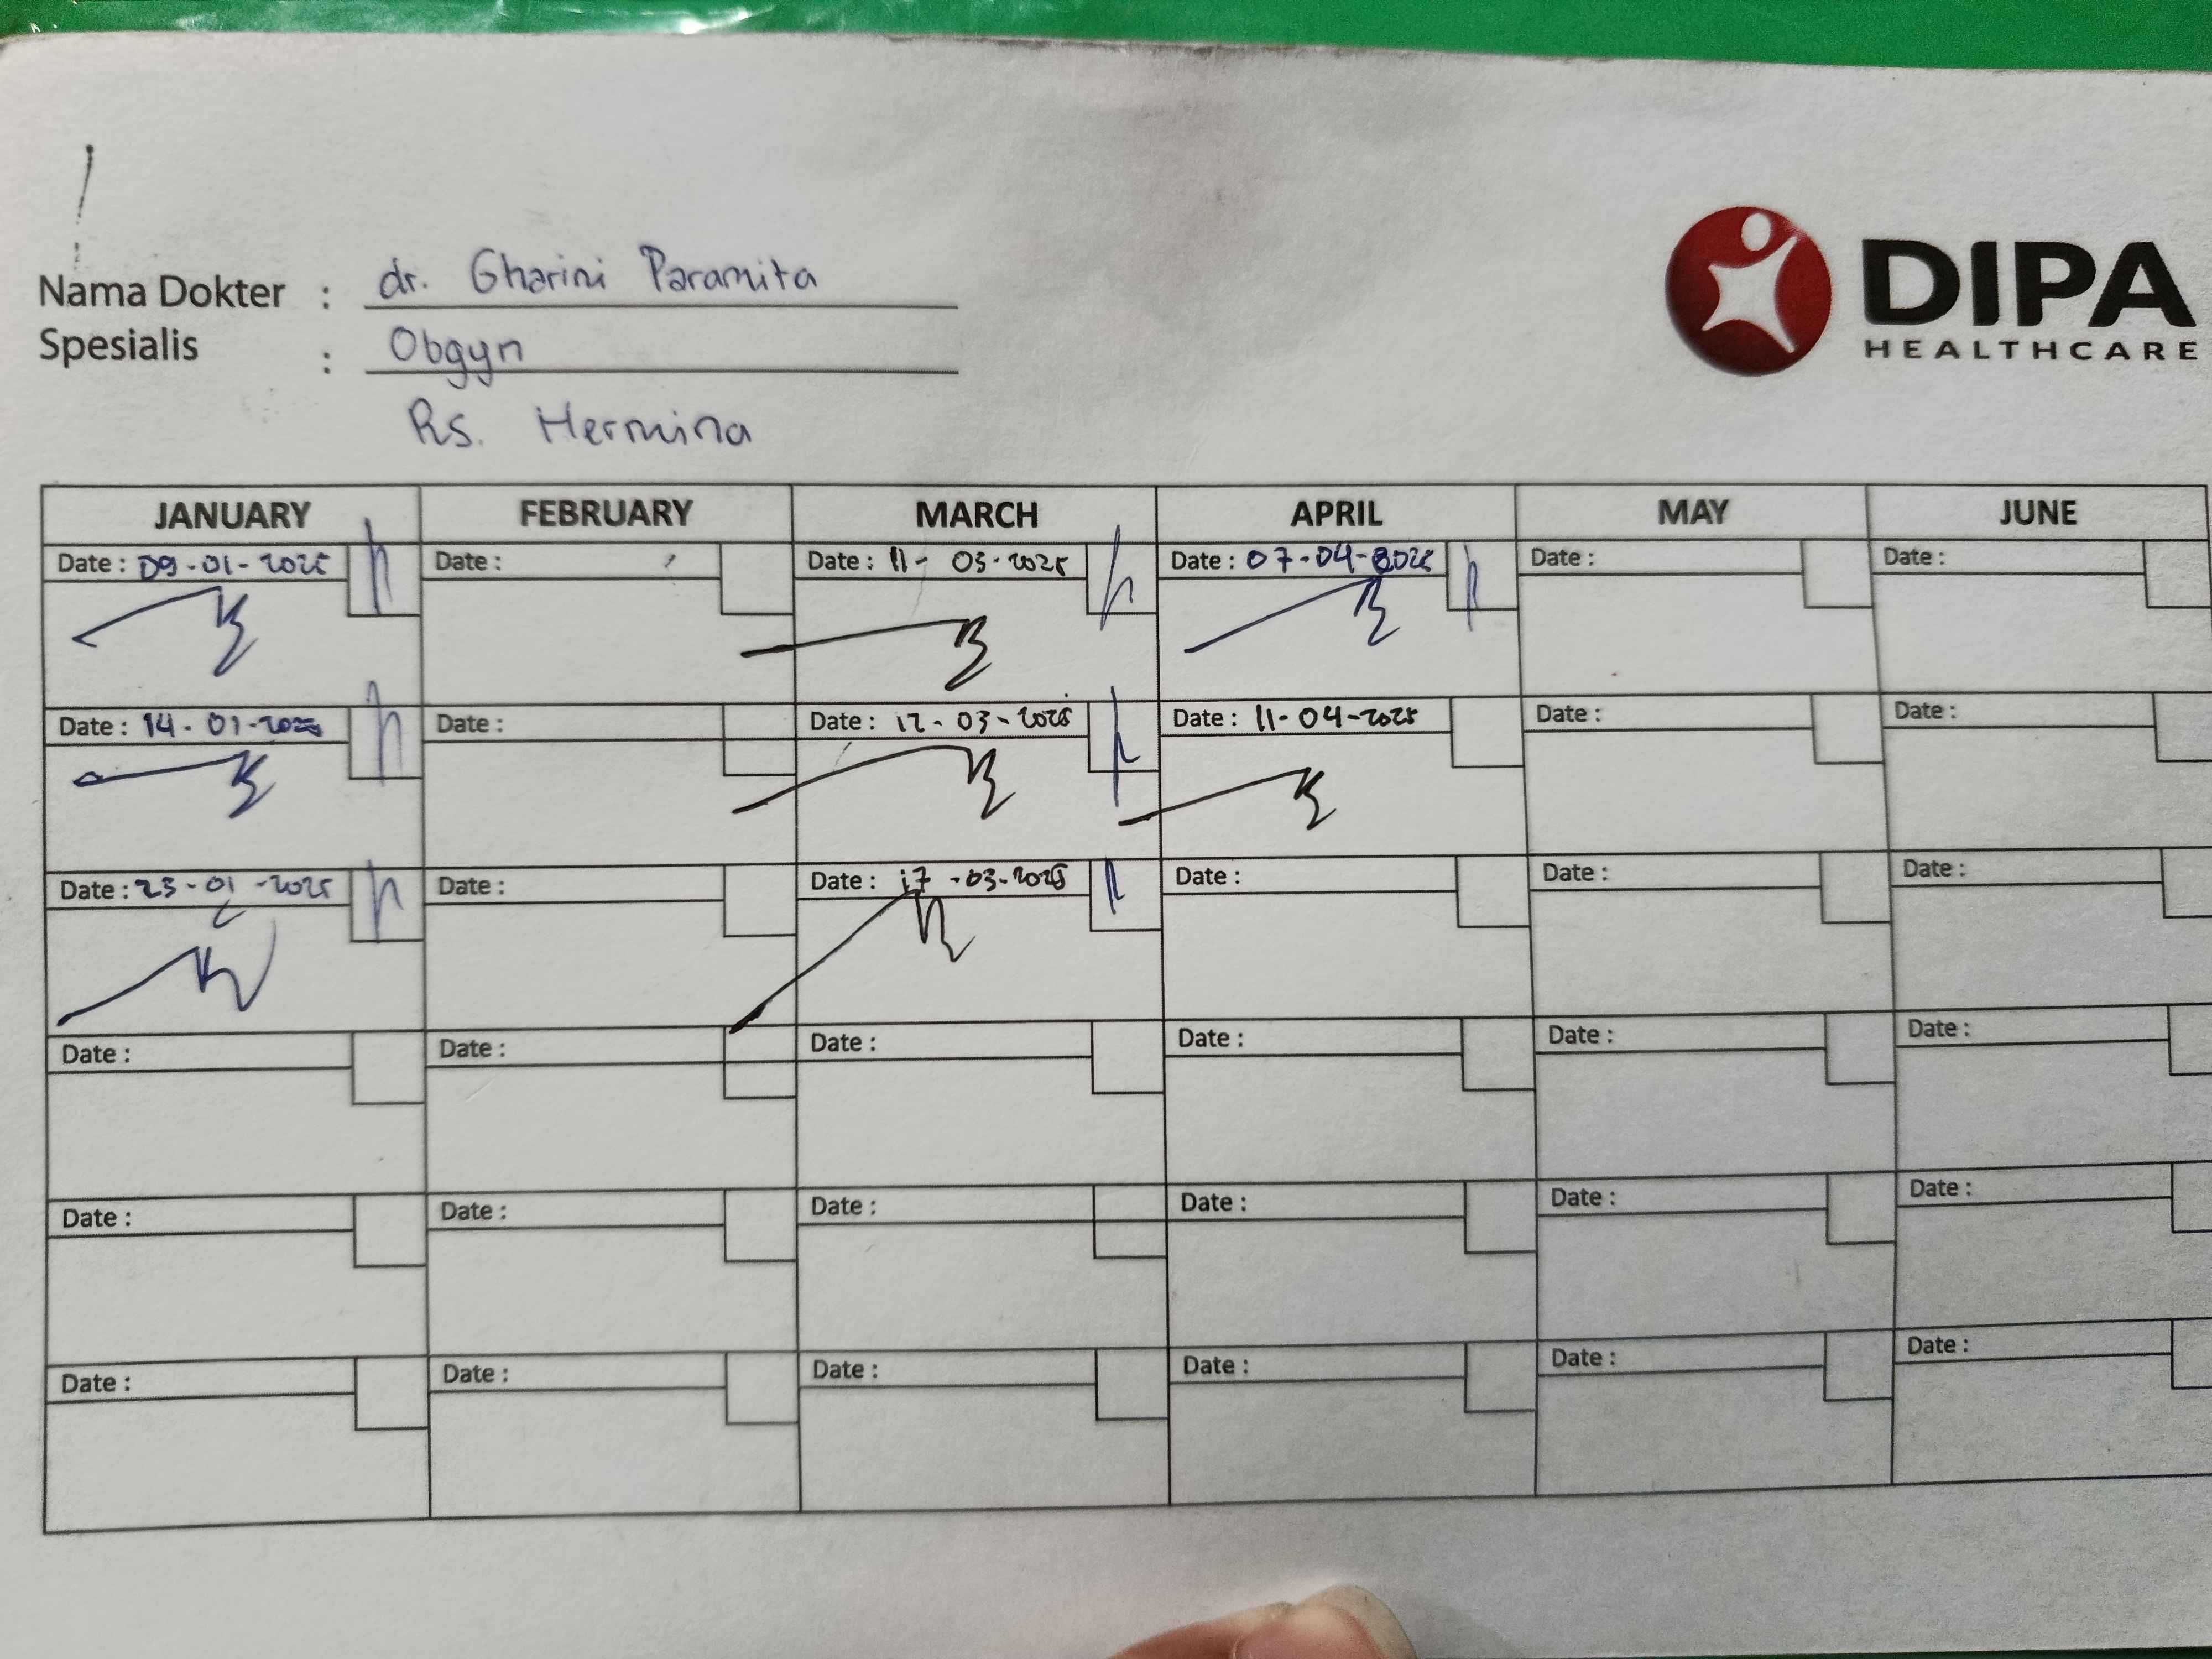 Nama Dokter : dr. Gharini Paramita
Spesialis : Obgyn
Rs. Hermina
DIPA
HEALTHCARE
JANUARY FEBRUARY MARCH APRIL MAY JUNE
Date : 09-01-2025 Date : Date : 11- 03-2025 Date : 07-04-2025 Date : Date :
Date : 14-01-2025 Date : Date : 12-03-2025 Date : 11-04-2025 Date : Date :
Date : 23-01-2025 Date : Date : 17-03-2025 Date : Date : Date :
Date : Date : Date : Date : Date : Date :
Date : Date : Date : Date : Date : Date :
Date : Date : Date : Date : Date : Date :